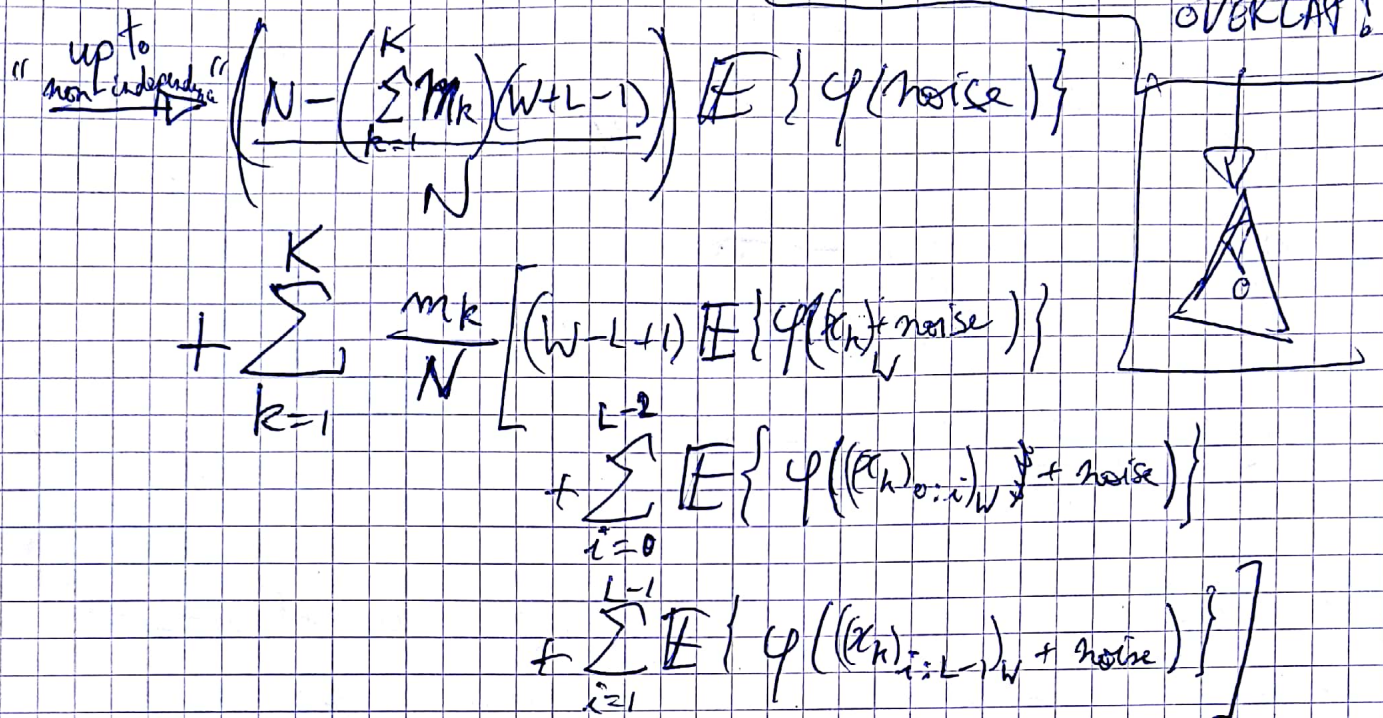 OVERLAP!
"up to non-independence" (N - (∑_{k=1}^{K} m_k)(W+L-1) / N) 𝔼{φ(noise)}
+ ∑_{k=1}^{K} m_k/N [(W-L+1) 𝔼{φ((x_k)_W + noise)}
+ ∑_{i=0}^{L-2} 𝔼{φ(((x_k)_{0:i})_W + noise)}
+ ∑_{i=1}^{L-1} 𝔼{φ(((x_k)_{i:L-1})_W + noise)}]
0